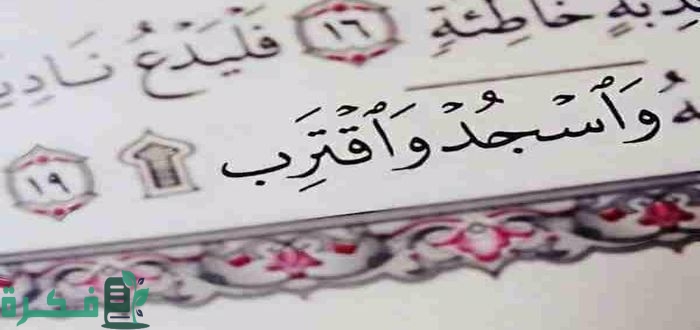 ـذِبَةٍ خَاطِئَةٍ ١٦ فَلْيَدْعُ نَادِيَـ
ـهُ وَٱسْجُدْ وَٱقْتَرِب ۩ ١٩
فكرة